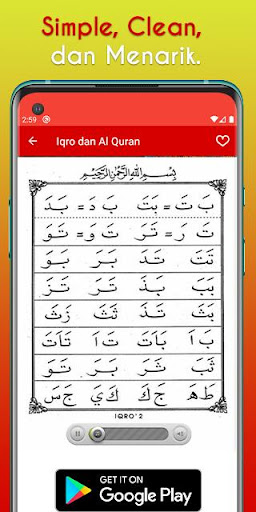 Simple, Clean,
dan Menarik.
2:59
Iqro dan Al Quran
بِسْمِ اللهِ الرَّحْمٰنِ الرَّحِيْمِ
بَ تَ = بَتَ بَ دَ = بَدَ
تَ رَ = تَرَ تَ وَ = تَوَ
تَتَ تَدَ بَرَ بَوَ
بَبَ بَذَ تَزَ
بَثَ تَذَ ثَثَ زَثَ
بَ اَ بَاتَ تَ اَ تَاتَ
ثَبَ ثَرَ بَرَ تَوَ
طَهَ جَ كَ كَ يَ جَ سَ
IQRO' 2
GET IT ON
Google Play